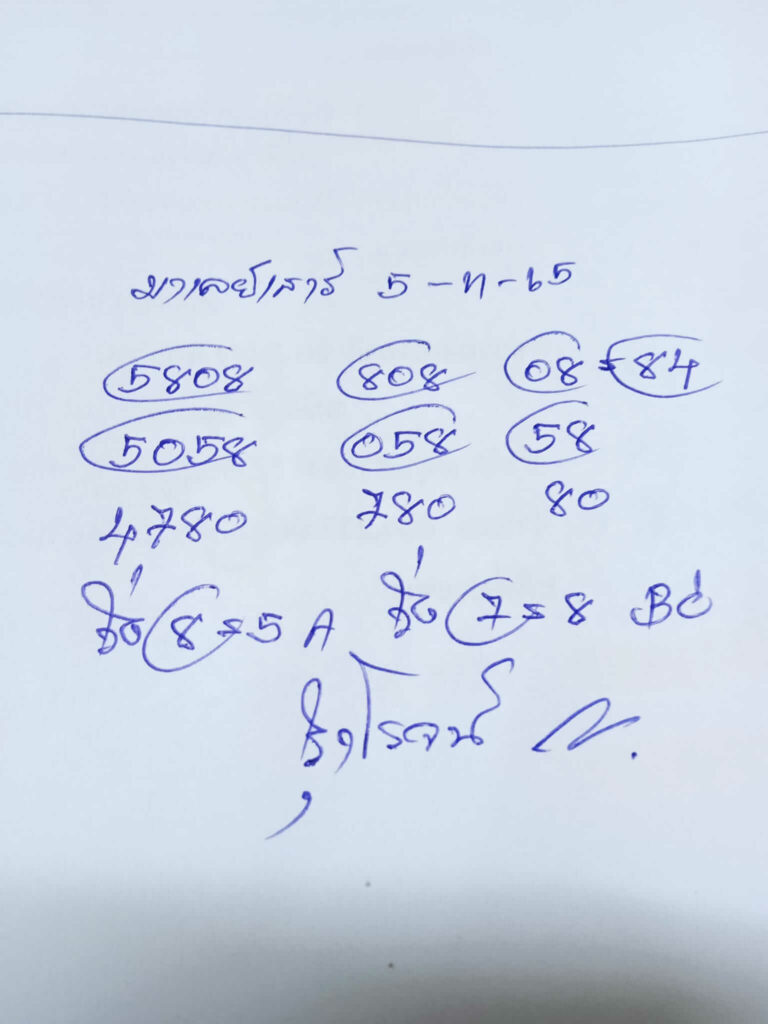 มาเลย์เสาร์ 5-ท-65
5808 808 08=84
5058 058 58
4780 780 80
8=5 A 7=8
โรจน์